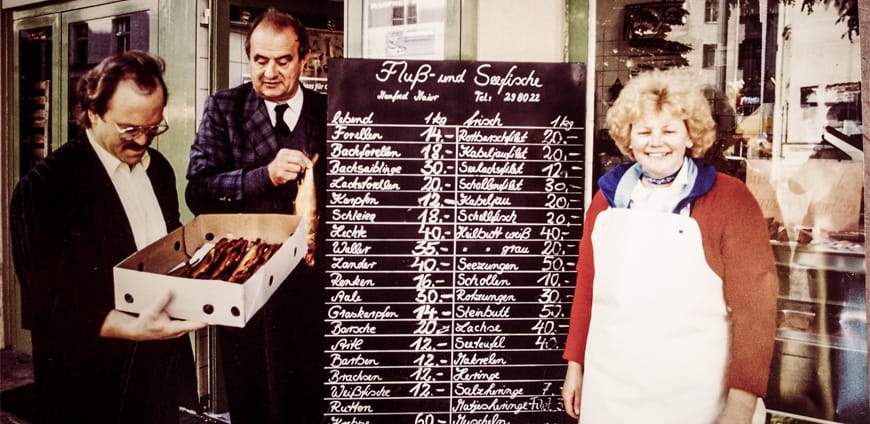 Fluß- und Seefische
Manfred Maier Tel: 298022
lebend 1 kg frisch 1 kg
Forellen 14.- Rotbarschfilet 20.-
Bachforellen 18.- Kabeljaufilet 20.-
Bachsaiblinge 30.- Seelachsfilet 12.-
Lachsforellen 20.- Schollenfilet 30.-
Karpfen 12.- Kabeljau 20.-
Schleien 18.- Schellfisch 20.-
Hechte 40.- Heilbutt weiß 40.-
Waller 35.- " " grau 20.-
Zander 40.- Seezungen 50.-
Renken 16.- Schollen 10.-
Aale 30.- Rotzungen 30.-
Graskarpfen 14.- Steinbutt 50.-
Barsche 20.- Lachse 40.-
Aitl 12.- Seeteufel 40.-
Barben 12.- Makrelen
Brachsen 12.- Heringe
Weißfische 12.- Salzheringe 7.-
Rutten Matjesheringe Filet
60.- Muscheln